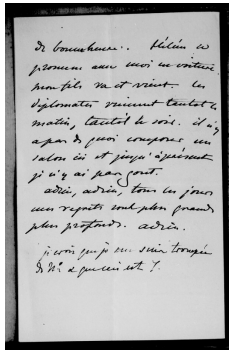 de bonne heure. Hélène se
promène avec moi en voiture.
mon fils va et vient. les
diplomates viennent tantôt le
matin, tantôt le soir. il n'y
a pas de quoi composer un
salon ici et jusqu'à présent
je n'y ai pas gout.
adieu, adieu, tous les jours
mes regrets sont plus grands
plus profonds. adieu.
je crois que je me suis trompée
de N° a que ceci est 7.